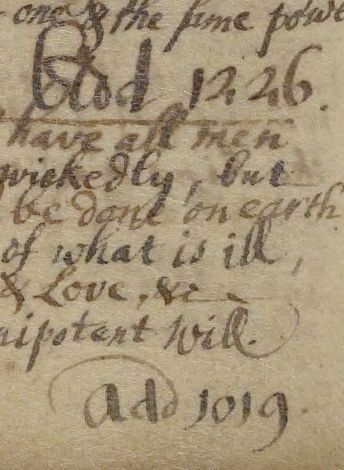 one & the same powe
God 1226.
have all men
wickedly, but
be done on earth
of what is ill,
& Love, &c
nipotent Will.
Add 1019